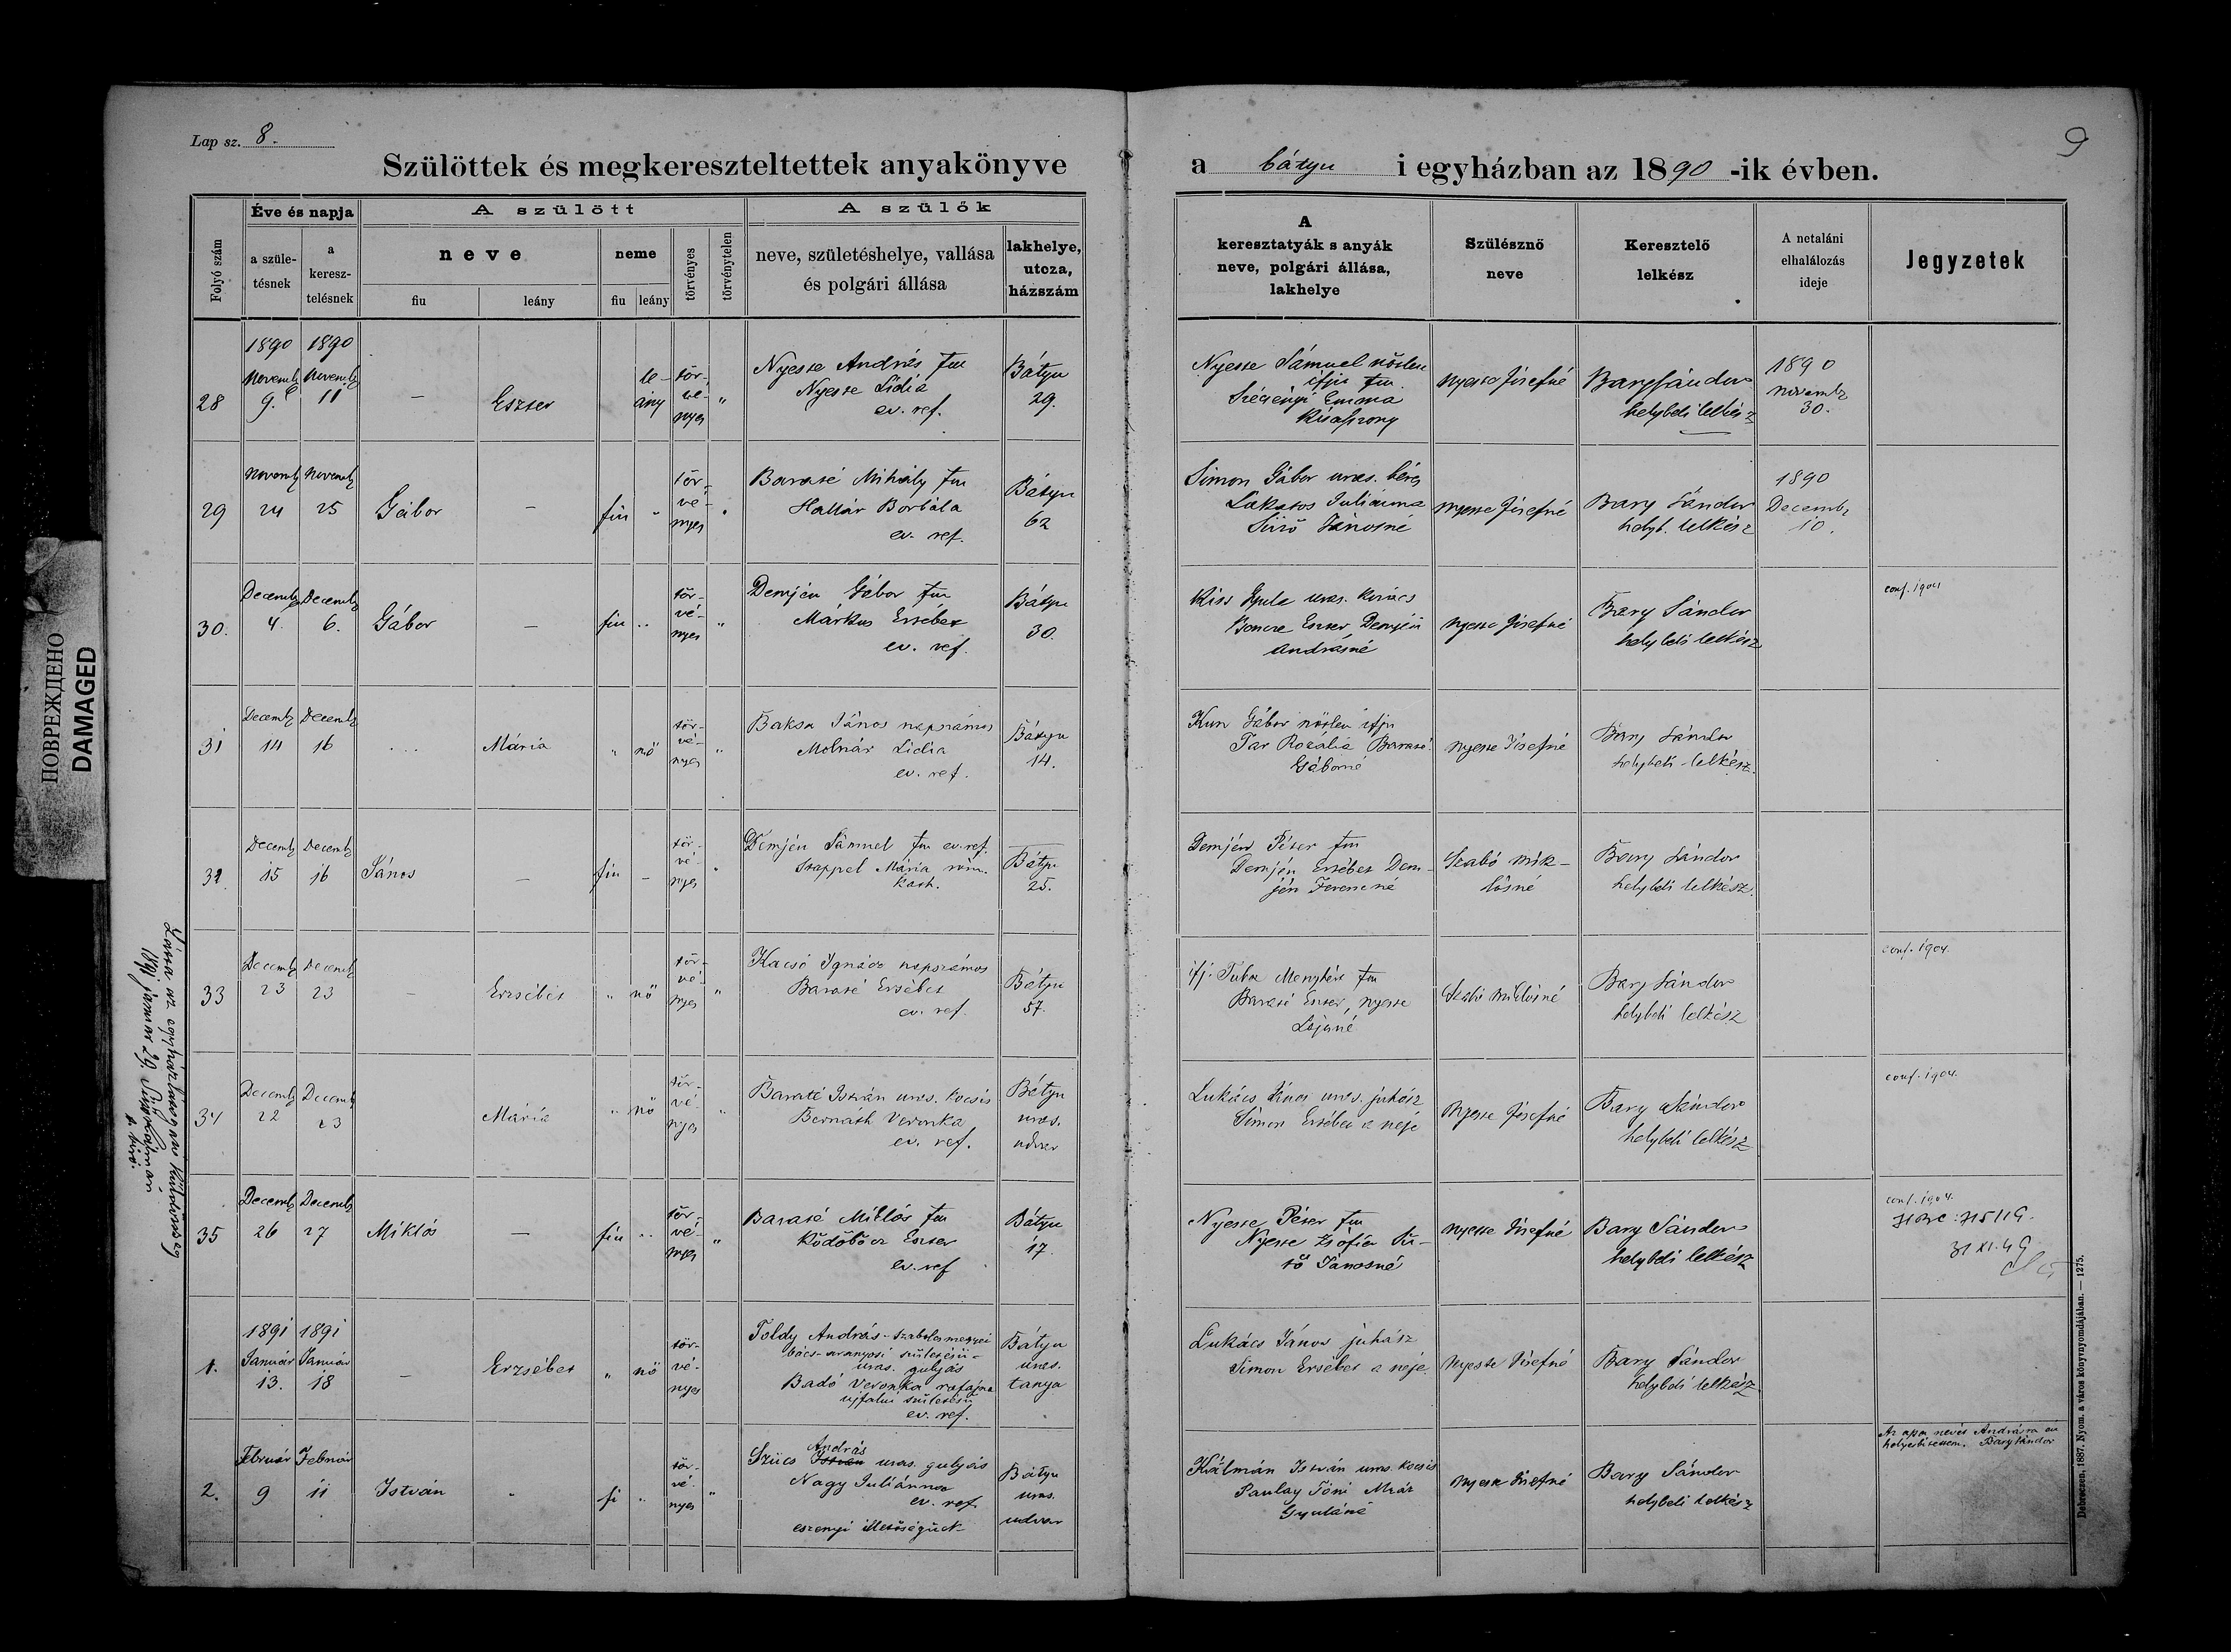 Lap sz. 8.
Szülöttek és megkereszteltettek anyakönyve
a bátyu i egyházban az 1890-ik évben.
9
Folyó szám
Éve és napja
a születésnek
a keresztelésnek
A szülött
neve
fiu
leány
neme
fiu leány
törvényes
törvénytelen
A szülők
neve, születéshelye, vallása
és polgári állása
lakhelye,
utcza,
házszám
A
keresztatyák s anyák
neve, polgári állása,
lakhelye
Szülésznő
neve
Keresztelő
lelkész
A netaláni
elhalálozás
ideje
Jegyzetek
28 1890 Novemb 9. 1890 Novemb 11 — Eszter leány törvényes „
Nyeste András fm
Nyeste Lidia
ev. ref.
Bátyu
29.
Nyeste Sámuel nőtlen
ifju fm
Emma
Nyeste Józsefné
Bary Sándor
helybeli lelkész
1890
Novemb
30.
29 Novemb 24 Novemb 25 Gábor — fiu „ törvényes „
Baraté Mihály fm
Borbála
ev. ref.
Bátyu
62
Simon Gábor uras. béres
Lakatos Julianna
Jánosné
Nyeste Józsefné
Bary Sándor
helyb. lelkész
1890
Decemb
10.
30. Decemb 4. Decemb 6. Gábor — fiu „ törvényes „
Demjén Gábor fm
Márkus Ersébet
ev. ref.
Bátyu
30.
Kiss Gyula uras. kovács
Eszter, Demjén
Andrásné
Nyeste Józsefné
Bary Sándor
helybeli lelkész
conf. 1904
31 Decemb 14 Decemb 16 Mária „ nő törvényes „
Baksa János napszámos
Molnár Lidia
ev. ref.
Bátyu
14.
Kun Gábor nőtlen ifju
Tar Rozália Baraté
Gáborné
Nyeste Józsefné
Bary Sándor
helybeli lelkész.
32. Decemb 15 Decemb 16 János — fiu — törvényes „
Demjén Sámuel fm ev. ref.
Mária róm.
kath.
Bátyu
25.
Demjén Péter fm
Demjén Ersébet Dem-
jén Ferencné
Szabó Mik-
lósné
Bary Sándor
helybeli lelkész.
33 Decemb 23 Decemb 23 — Erzsébet „ nő törvényes „
Kacsó Ignácz napszámos
Baraté Ersébet
ev. ref.
Bátyu
57.
ifj. Menyhért fm
Baraté Eszter, Nyeste
Lajosné
Szabó Miklósné
Bary Sándor
helybeli lelkész
conf. 1904.
34 Decemb 22 Decemb 23 Mária „ nő törvényes „
Baraté István uras. kocsis
Bernáth Veronka
ev. ref.
Bátyu
uras.
udvar
Lukács János uras. juhász
Simon Ersébet a neje
Nyeste Józsefné
Bary Sándor
helybeli lelkész
conf. 1904.
35 Decemb 26 Decemb 27 Miklós — fiu „ törvényes „
Baraté Miklós fm
Ködöböcz Eszter
ev. ref
Bátyu
17.
Nyeste Péter fm
Nyeste Zsófia
Jánosné
Nyeste Józsefné
Bary Sándor
helybeli lelkész
conf. 1904.
31 XI. 49
1. 1891 Január 13. 1891 Január 18 — Erzsébet „ nő törvényes „
Toldy András - szabolcsmegyei
bács-aranyosi születésü -
uras. gulyás
Badó Veronka rafajna
ujfalui születésü
ev. ref.
Bátyu
uras.
tanya
Lukács János juhász
Simon Ersébet a neje
Nyeste Józsefné
Bary Sándor
helybeli lelkész
2. Február 9 Február 11 István „ fi „ törvényes „
András
Szücs István uras. gulyás
Nagy Juliánna
ev. ref
eszenyi illetőségüek
Bátyu
uras.
udvar
Kálmán István uras. kocsis
Paulay Tóni
Gyuláné
Nyeste Józsefné
Bary Sándor
helybeli lelkész
Az apa nevét Andrásra én
helyesbítettem. Bary Sándor
1891 január 29.
ПОВРЕЖДЕНО
DAMAGED
Debreczen, 1887. Nyom. a város könyvnyomdájában. — 1275.